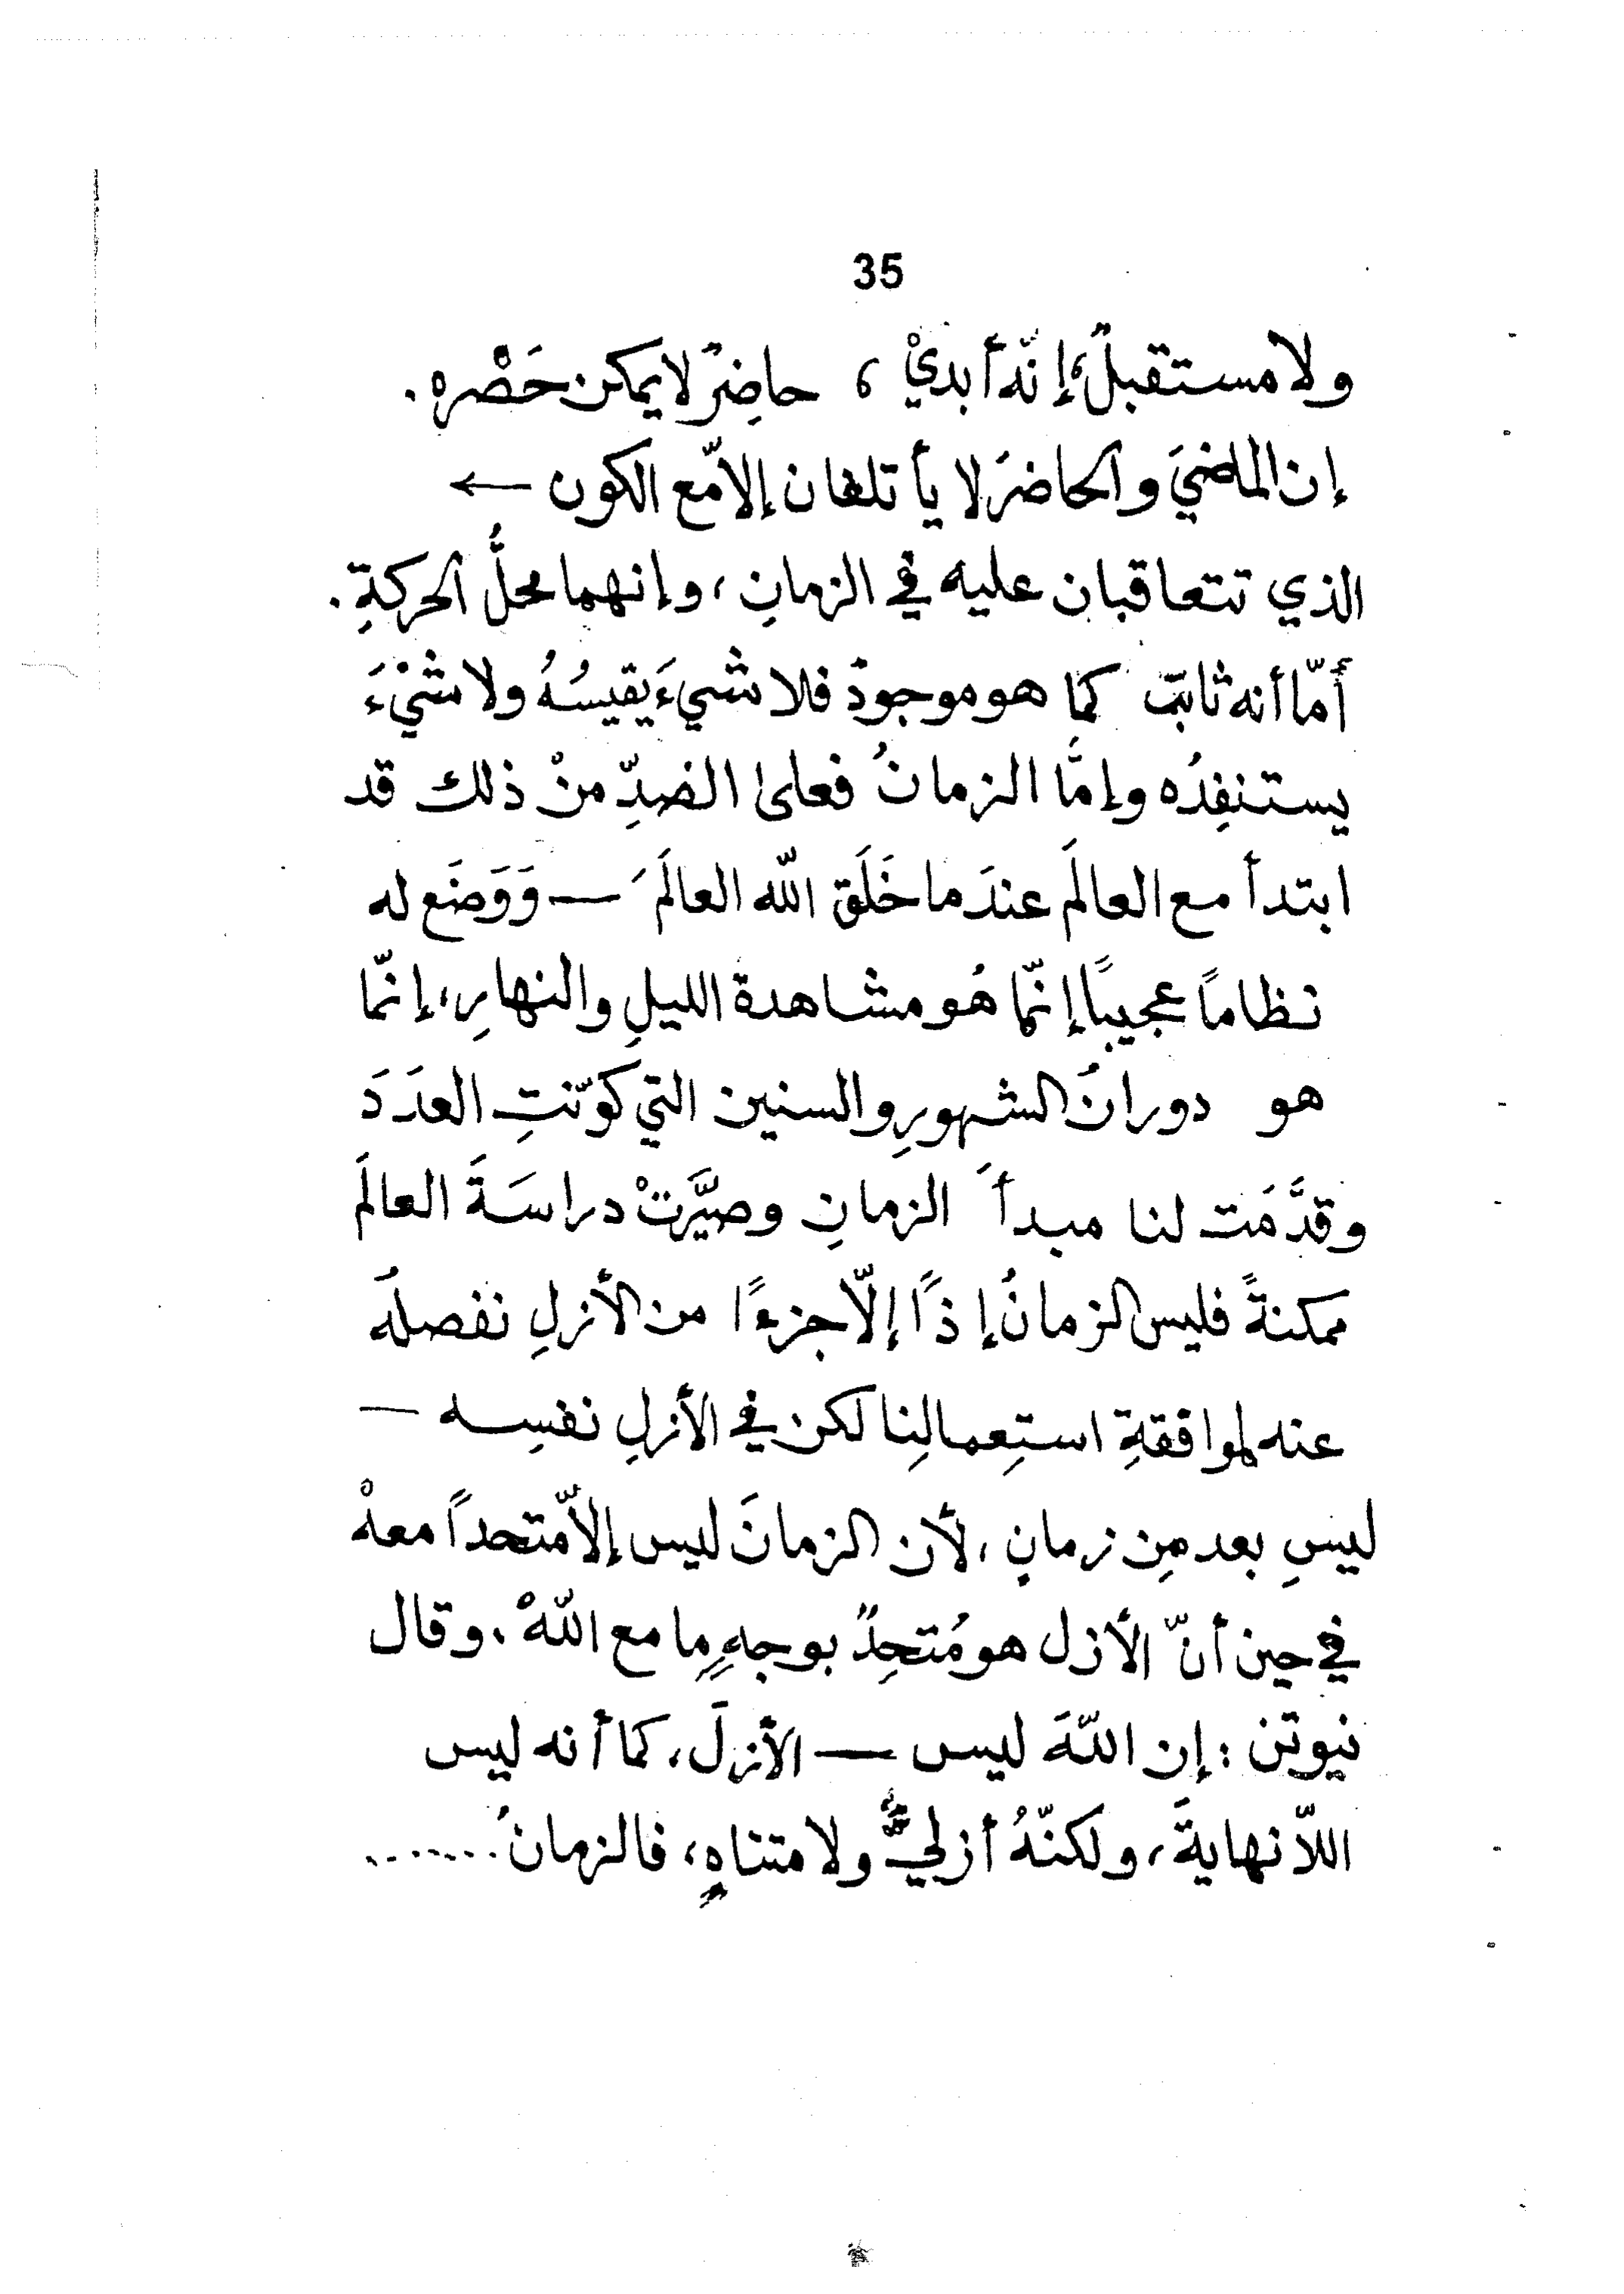 35
ولا مستقبلٌ، إنّه أبديْ ، حاضِرٌ لا يمكن حَصْره.
إن الماضيَ والحاضرَ لا يأتلفان إلاّ مع الكون ←
الذي تتعاقبان عليه في الزمانِ، وإنهما محلُّ الحركةِ.
أمّا أنه ثابتٌ كما هو موجودٌ فلا شيءَ يقيسُهُ ولا شَيْءَ
يستنفِدُه وإمَّا الزمانُ فعلى الضدِّ منْ ذلك قد
ابتدأ مع العالَم عندَ ما خَلَق اللّه العالَمَ — وَوَضَع له
نظاماً عجيباً إنّما هُو مشاهدة الليلِ والنهارِ، إنّما
هو دورانَ الشهورِ والسنين التي كوّنتِ العدَدَ
وقدَّمَت لنا مبدأَ الزمانِ وصيَّرتْ دراسَةَ العالَم
ممكنةً فليس الزمانُ إذاً إلاّ جزءًا من الأزلِ نفصلُه
عنه لموافقةِ استِعمالِنا لكن في الأزلِ نفسِه —
ليسِ بعد مِن زمانٍ، لأن الزمانَ ليس إلاّ متحداً معهْ
في حين أنّ الأزل هو مُتحِدٌ بوجهٍ ما مع اللّهْ. وقال
نيوتن : إن اللّهَ ليس — الأزلَ، كما أنه ليس
اللاّنهايةَ، ولكنّهُ أزليٌّ ولا متناهٍ، فالزمانُ .......